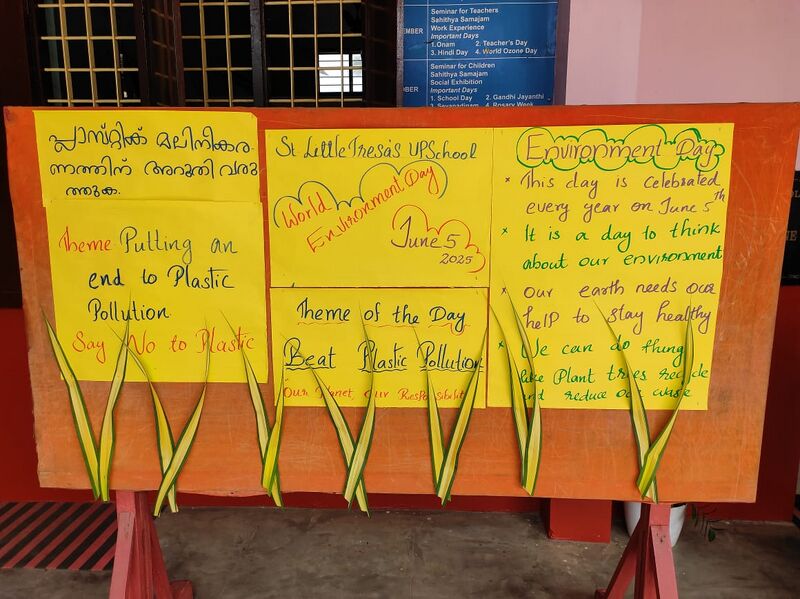 Seminar for Teachers
Sahithya Samajam
Work Experience
Important Days
1.Onam 2. Teacher's Day
3. Hindi Day 4. World Ozone Day
Seminar for Children
Sahithya Samajam
Social Exhibition
Important Days
1. School Day 2. Gandhi Jayanthi
4. Rosary Week
പ്ലാസ്റ്റിക് മലിനീകര
ണത്തിന് അറുതി വരു
ത്തുക.
Theme Putting an
end to Plastic
Pollution.
Say No to Plastic
St Little Tresa's UPSchool
World
Environment Day
June 5
2025
Theme of the Day
Beat Plastic Pollution
"Our Planet, our Responsibilit
Environment Day
* This day is celebrated
every year on June 5th
* It is a day to think
about our environment
* Our earth needs our
help to stay healthy
* We can do thing
like Plant trees recycle
and reduce our waste